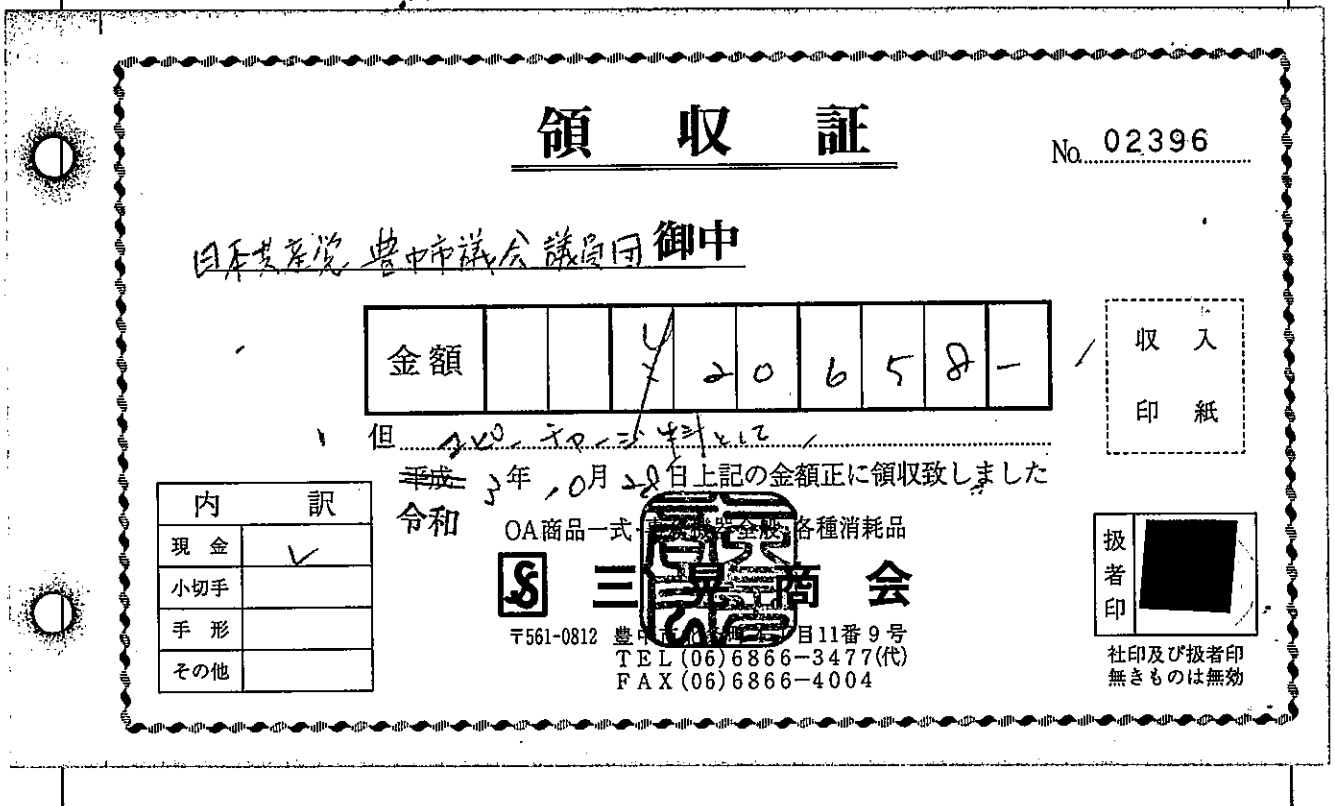 領収証
No. 02396
日本共産党 豊中市議会議員団 御中
金額 ¥20658-
但 コピーチャージ料として
平成 3年10月28日上記の金額正に領収致しました
令和
内訳
現金 ✓
小切手
手形
その他
OA商品一式・事務機器全般・各種消耗品
三晃商会
〒561-0812 豊中市 目11番9号
TEL(06)6866-3477(代)
FAX(06)6866-4004
収入
印紙
扱者印
社印及び扱者印
無きものは無効